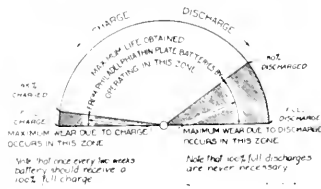 CHARGE
DISCHARGE
MAXIMUM LIFE OBTAINED
FROM PHILADELPHIA THIN PLATE BATTERIES BY
OPERATING IN THIS ZONE
CHARGED
DISCHARGED
CHARGE
FULL
DISCHARGE
MAXIMUM WEAR DUE TO CHARGE
OCCURS IN THIS ZONE
MAXIMUM WEAR DUE TO DISCHARGE
OCCURS IN THIS ZONE
Note that once every two weeks
battery should receive a
100% full charge
Note that 100% full discharges
are never necessary